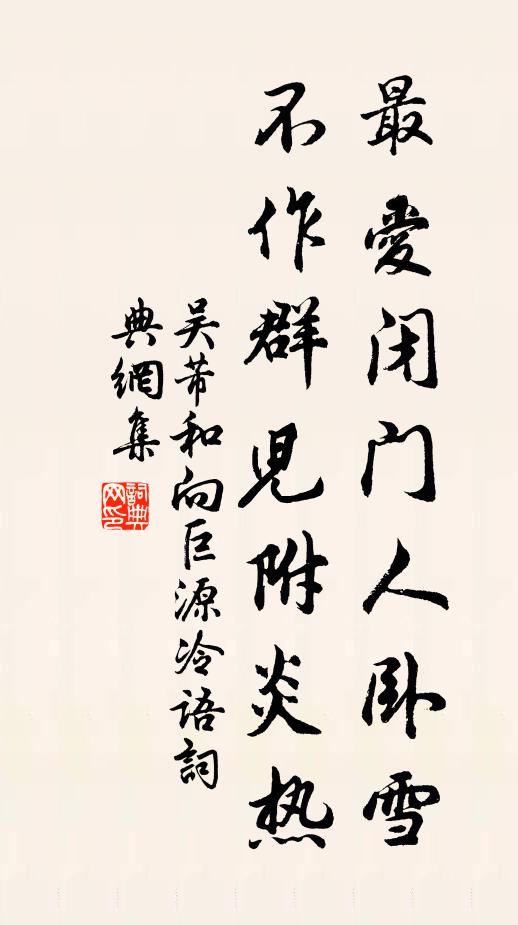 最愛闭门人卧雪
不作群児附炎热
吴芾和向巨源冷语詞
典網集
詞典网印